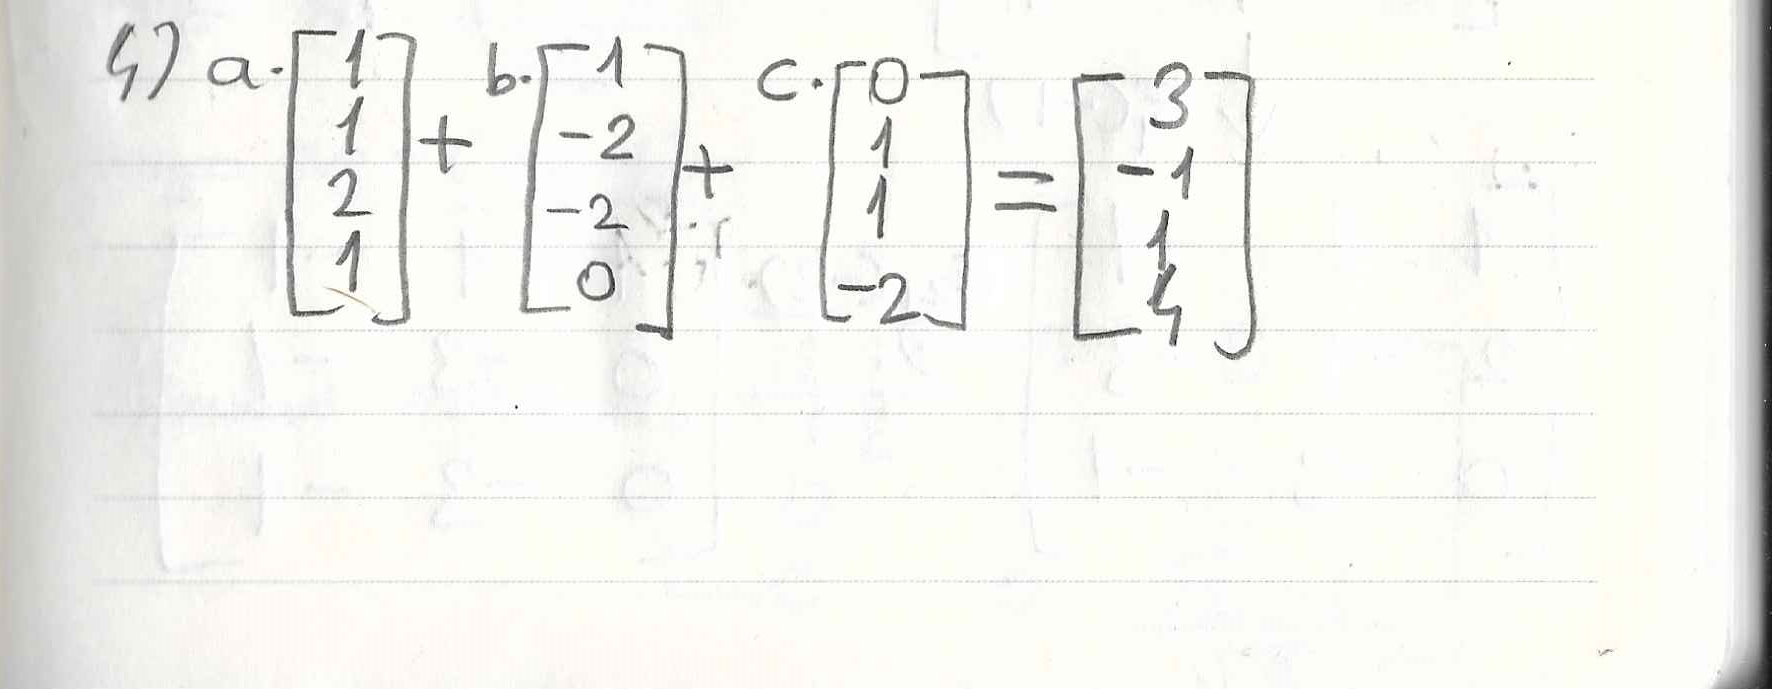 4) a·[1 1 2 1] + b·[1 -2 -2 0] + c·[0 1 1 -2] = [3 -1 1 4]